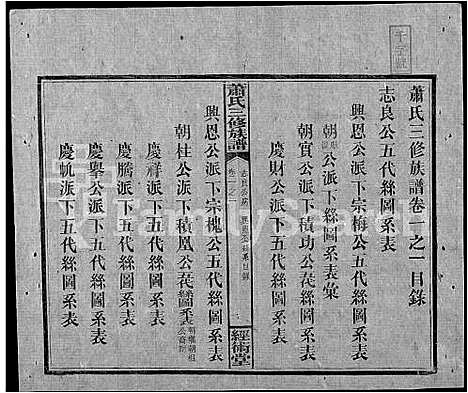 蕭氏三修族譜卷二之一目錄
志良公五代絲圖系表
興恩公派下宗梅公五代絲圖系表
朝 公派下絲圖系表彙
朝賓公派下積功公莪絲圖系表
慶財公派下五代絲圖系表
蕭氏三修族譜
卷二之一
經術堂
興恩公派下宗槐公五代絲圖系表
朝柱公派下積凰公莪絲圖系表
慶祥派下五代絲圖系表
慶騰派下五代絲圖系表
慶舉公派下五代絲圖系表
慶帆派下五代絲圖系表
FamilySearch